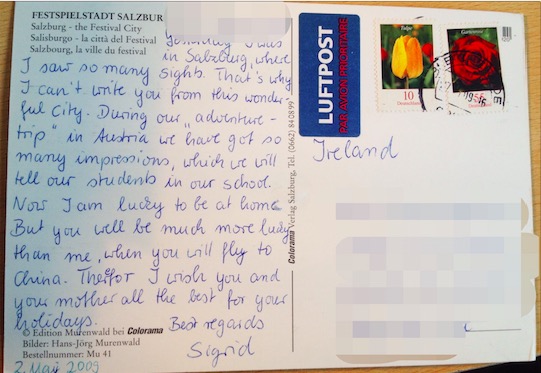 FESTSPIELSTADT SALZBUR
Salzburg - the Festival City
Salisburgo - la città del Festival
Salzbourg, la ville du festival
Yesterday I was
in Salzburg, where
I saw so many sights. That's why
I can't write you from this wonder
ful City. During our „adventure-
trip" in Austria we have got so
many impressions, which we will
tell our students in our school.
Now I am lucky to be at home.
But you will be much more lucky
than me, when you will fly to
China. Therfor I wish you and
your mother all the best for your
holidays.
Best regards
Sigrid
© Edition Murenwald bei Colorama
Bilder: Hans-Jörg Murenwald
Bestellnummer: Mu 41
2. Mai 2009
Colorama Verlag Salzburg, Tel. (0662) 84 08 99
LUFTPOST
PAR AVION PRIORITAIRE
Tulpe
10
Deutschland
Gartenrose
Ireland